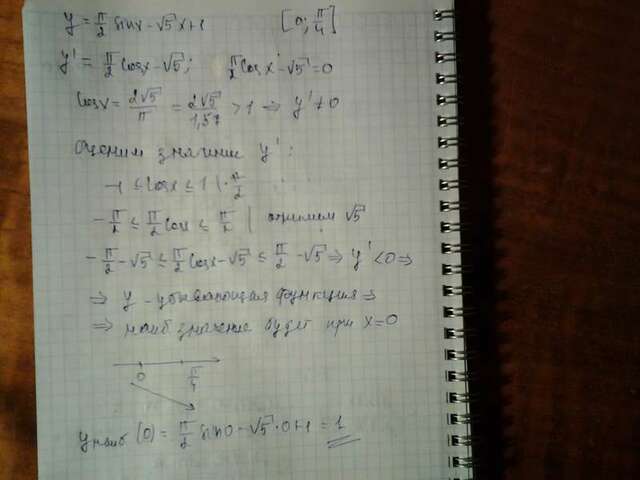 y = π/2 sinx - √5 x + 1 [0; π/4]
y' = π/2 cosx - √5; π/2 cosx - √5 = 0
cosx = 2√5/π = 2√5/1,57 > 1 ⇒ y' ≠ 0
Оценим значение y':
-1 ≤ cosx ≤ 1 | · π/2
-π/2 ≤ π/2 cosx ≤ π/2 | отнимем √5
-π/2 - √5 ≤ π/2 cosx - √5 ≤ π/2 - √5 ⇒ y' < 0 ⇒
⇒ y - убывающая функция ⇒
⇒ наиб значение будет при x = 0
0 π/4
y наиб (0) = π/2 sin0 - √5 · 0 + 1 = 1